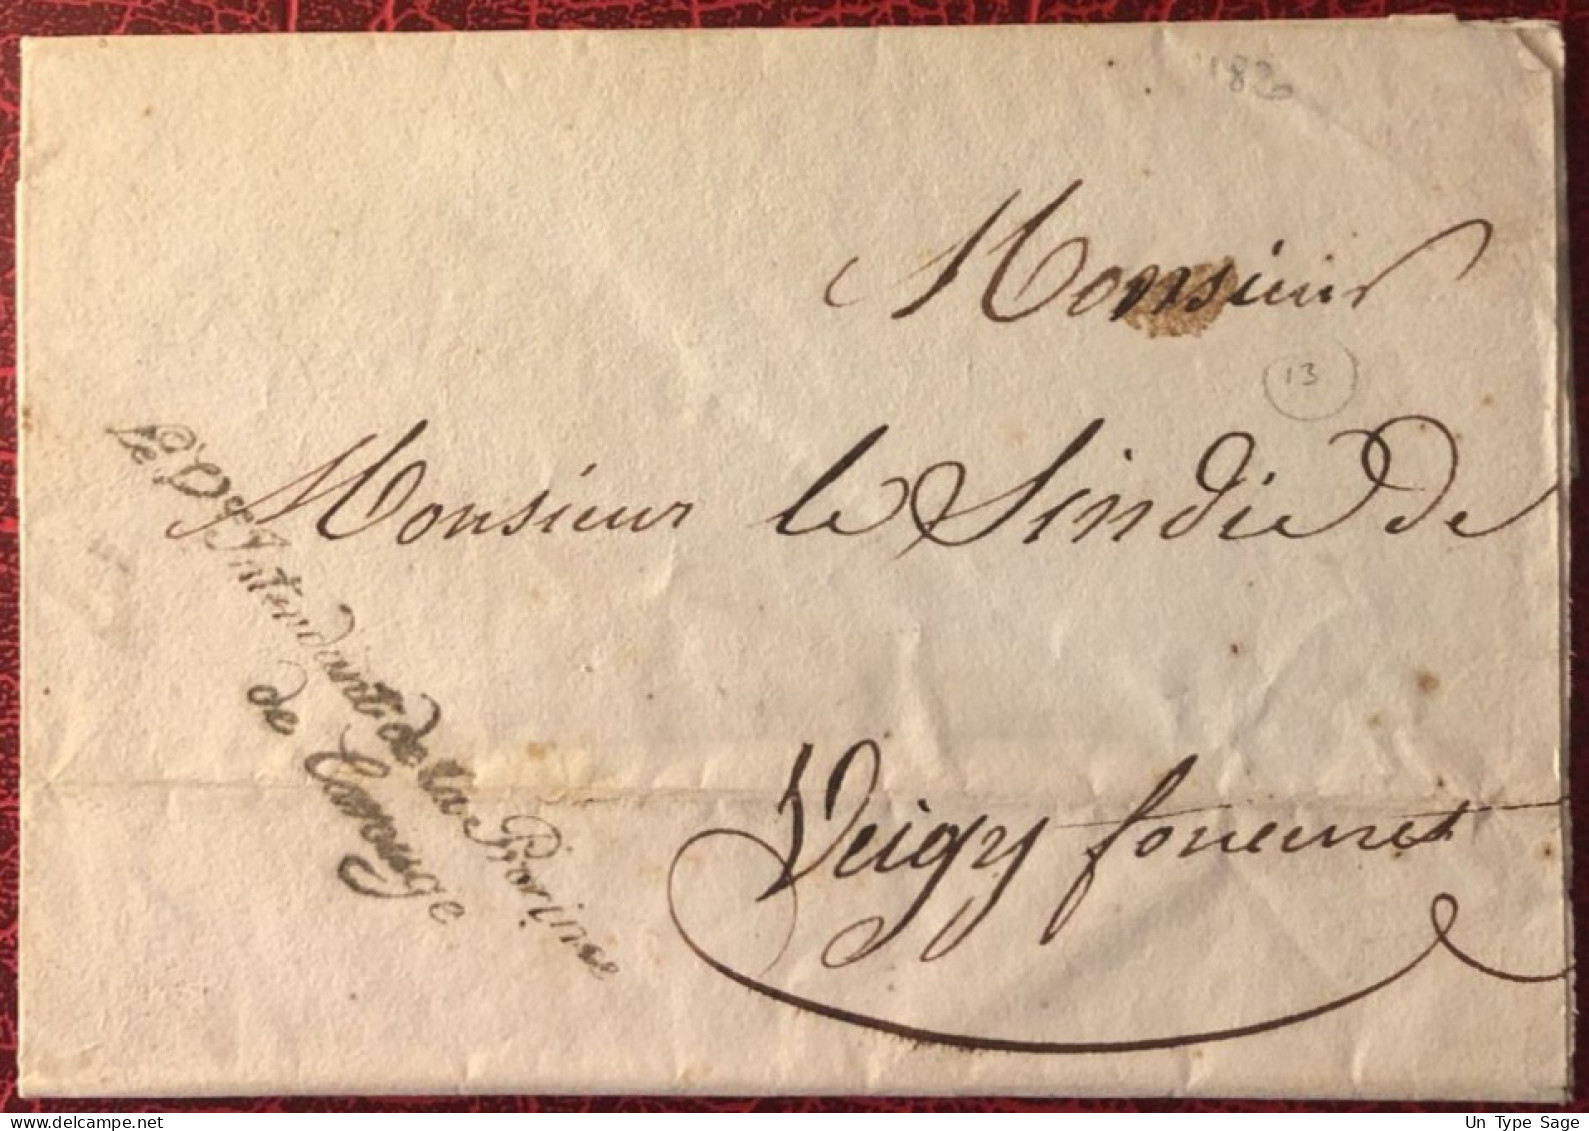 1830
Monsieur
13
Monsieur le Sindic de
Veigy foncenex
Le V. Intendant de la Province
de Carouge
delcampe.net
Un Type Sage